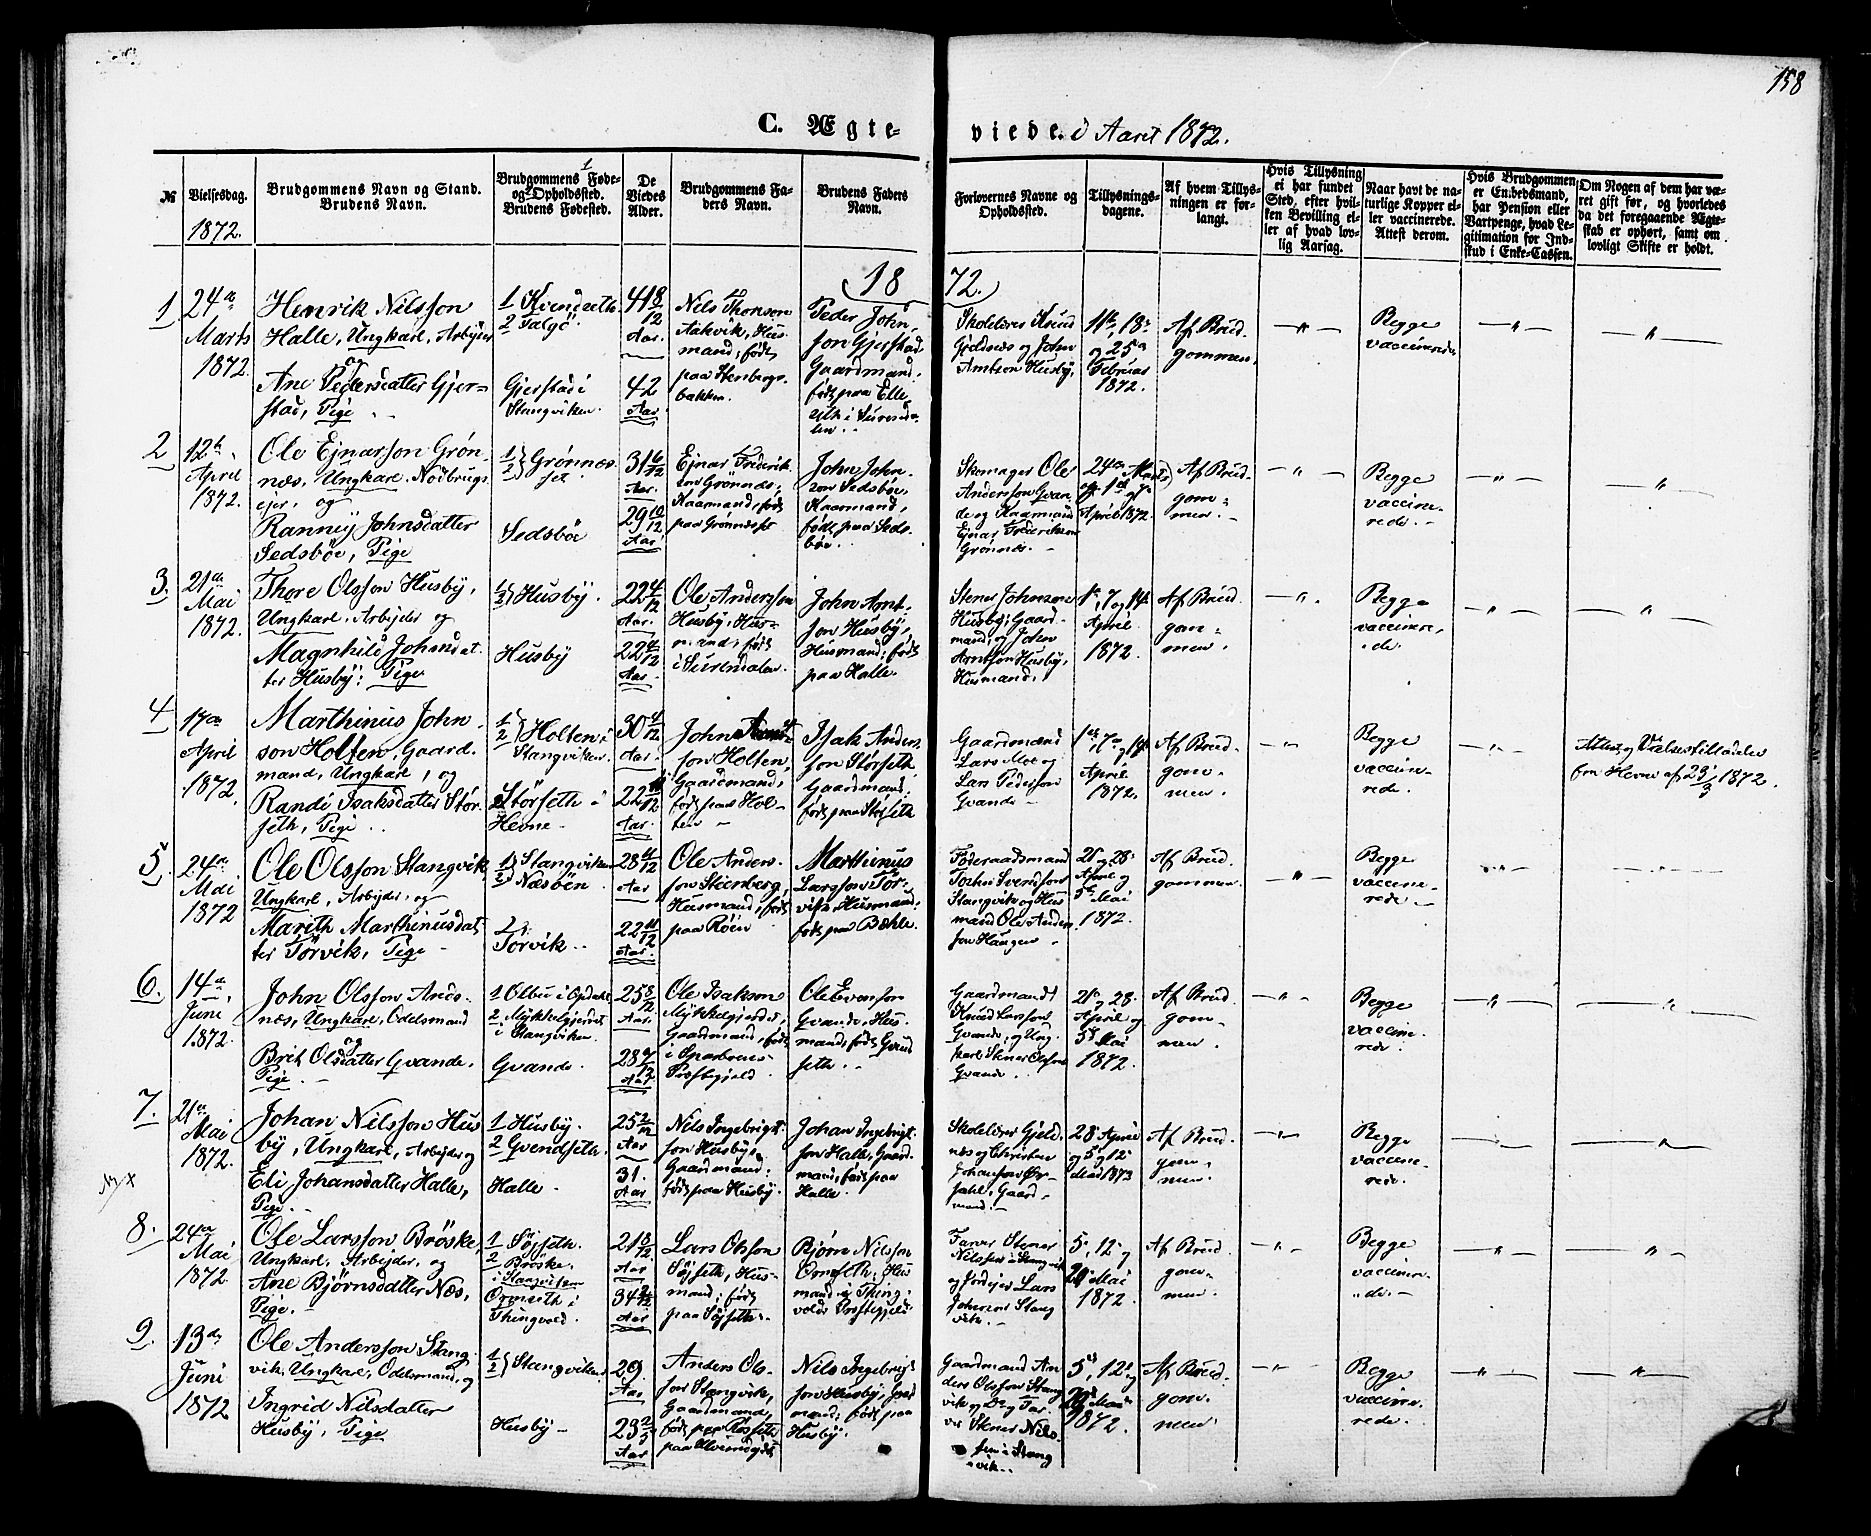 158
C. Ægteviede i Aaret 1872.
№
Vielsesdag.
1872.
Brudgommens Navn og Stand.
Brudens Navn.
Brudgommens Føde-
og Opholdssted.
Brudens Fødested.
De
Viedes
Alder.
Brudgommens Fa-
ders Navn.
Brudens Faders
Navn.
Forlovernes Navne og
Opholdssted.
Tillysnings-
dagene.
Af hvem Tillys-
ningen er for-
langt.
Hvis Tillysning
ei har fundet
Sted, efter hvil-
ken Bevilling el-
ler af hvad lov-
lig Aarsag.
Naar havt de na-
turlige Kopper el-
ler vaccinerede.
Attest derom.
Hvis Brudgommen
er Embedsmand,
har Pension eller
Vartpenge, hvad Le-
gitimation for Ind-
skud i Enke-Cassen.
Om Nogen af dem har væ-
ret gift før, og hvorledes
da det foregaaende Ægte-
skab er ophørt, samt om
lovligt Skifte er holdt.
1872.
1
24de
Marts
1872.
Henrik Nilsson
Halle, Ungkarl, Arbejder
og
Ane Pedersdatter Gjer-
stad, Pige
1 Kvendseth
2 Talgö.
Gjerstad i
Stangviken.
41 8/12
Aar.
42
Aar.
Nils Thomsen
Aakvik, Hus-
mand, født
paa Stenbergs-
bakken.
Peder John-
son Gjerstad
Gaardmand.
født paa Elle-
i Surenda-
len.
Skolelærer Knud
Gjeldnæs og John
Arntson Husby.
11te, 18de
og 25de
Februar
1872.
Af Brud-
gommen.
Begge
vaccinerede
2
12te
April
1872.
Ole Ejnarson Grön-
næs, Ungkarl, Nödbrugs-
ejer, og
Ranney Johnsdatter
Sedsböe, Pige
1/2} Grönnæs-
set
Sedsböe
31 6/12
Aar.
29 10/12
Aar.
Ejnar Frederik-
son Grönnæs,
Kaarmand, født
paa Grönnæs
John John-
son Sedsböe,
Kaarmand,
født paa Seds-
böe.
Skomager Ole
Anderson Gvan-
de og Kaarmand
Ejnar Frederikson
Grönnæs.
24de Marts
og 1ste og 7de
April 1872.
Af Brud-
gom-
men.
Begge
vaccine-
rede.
3.
21de
Mai
1872.
Thore Olsson Husby,
Ungkarl, Arbejder og
Magnhild Johnsdat-
ter Husby; Pige
1/2} Husby.
Husby
22 4/12
Aar.
22 4/12
Aar.
Ole Anderson
Husby, Hus-
mand, født
i Surendalen.
John Arnt-
son Husby,
Husmand; født
paa Halle.
Stener Johnson
Husby, Gaard-
mand; og John
Arntson Husby,
Husmand,
1ste, 7de og 14de
April
1872.
Af Brud-
gom-
men.
Begge
vaccine-
rede.
4
17de
April
1872.
Marthinus John-
son Holten, Gaard-
mand, Ungkarl, og
Randi Isaksdatter Stör-
seth, Pige
1/2} Holten i
Stangviken.
Störseth i
Hevne
30 4/12
Aar.
22 11/12
Aar.
John
son Holten,
Gaardmand,
født paa Hol-
ten
Isak Anders-
son Störseth
Gaardmand;
født paa Störseth
Gaardmænd
Lars Moe og
Lars Pederson
Gvande
1ste, 7de og 14de
April
1872.
Af Brud-
gom-
men.
Begge
vaccine-
rede.
fra Hevne af 23/3 1872.
5.
24de
Mai
1872
Ole Olsson Stangvik,
Ungkarl, Arbejder, og
Marith Marthinusdat-
ter Törvik, Pige
1} Stangviken
2} Næsböen
Torvik
28 4/12
Aar
22 11/12
Aar.
Ole Anders-
son Stenberg,
Husmand, født
paa Röen
Marthinus
Larsson Tör-
vik, Husmand;
født paa Bæhle.
Föderaadsmand
Svendson
Stangvik og Hus-
mand Ole Anders-
son Haugen
21de og 28de
April og
5te Mai
1872.
Af Brud-
gommen.
Begge
vaccine-
rede.
6.
14de
Juni
1872.
John Olsson Aads-
næs, Ungkarl, Odelsmand
og
Brit Olsdatter Gvande.
Pige.
1 Olbu i Opdal
2 Mykkelgjerdet
i Stangviken.
Gvande.
25 8/12
Aar.
28 9/12
Aar.
Ole Isakson
Mykkelgjerdet,
Gaardmand, født
i Sparboens
Præstegjeld
Ole Evenson
Gvande, Hus-
mand, født Gvand-
seth.
Gaardmand
Knud Larsson
Gvande, og Ung-
karl Stener Olsson
Gvande.
21de og 28de
April og
5te Mai
1872.
Af Brud-
gom-
men.
Begge
vaccine-
rede.
7.
21de
Mai
1872.
Johan Nilsson Hus-
by, Ungkarl, Arbejder og
Eli Johansdatter Halle,
Pige.
1 Husby.
2 Gvendseth.
Halle.
25 2/12
Aar
31.
Aar
Nils Ingebrigt-
son Husby,
Gaardmand,
født paa Husby.
Johan Ingebrigt-
son Halle, Gaard-
mand; født paa
Halle.
Skolelærer Gjeld-
næs og Christen
Johanson Ør-
sahl, Gaard-
mand.
28de April
og 5te og 12te
Mai 1872
Af Brud-
gom-
men.
Begge
vaccine-
rede.
8.
24de
Mai
1872.
Ole Larsson Bröske,
Ungkarl, Arbejder, og
Ane Bjørnsdatter Næs,
Pige.
1 Söjseth.
2 Bröske,
i Stangviken
Ormseth i
Thingvold.
21 8/12
Aar
34
Aar
Lars Olsson
Söjseth, Hus-
mand; født
paa Söjseth.
Bjørn Nilsson
Ormseth, Hus-
mand i Thing-
volds Præstegjeld.
Farver Stener
Nilssen i Stangvik
og Jordejer Lars
Johnson Stang-
vik.
5te, 12te og
20de Mai
1872.
Af Brud-
gom-
men.
Begge
vaccine-
rede.
9.
13de
Juni
1872
Ole Andersson Stang-
vik, Ungkarl, Odelsmand, og
Ingrid Nilsdatter
Husby, Pige
1/2} Stangviken
Husby
29.
Aar
23
Aar
Anders Ols-
son Stangvik,
Gaardmand,
født paa Røsseth
paa
Nils Ingebrigt-
son Husby, Gaard-
mand; født paa
Husby.
Gaardmand An-
ders Olsson Stang-
vik og Far-
ver Stener Nils-
sen i Stang-
vik.
5te, 12te og
20de Mai
1872.
Af Brud-
gom-
men.
Begge
vaccine-
rede.